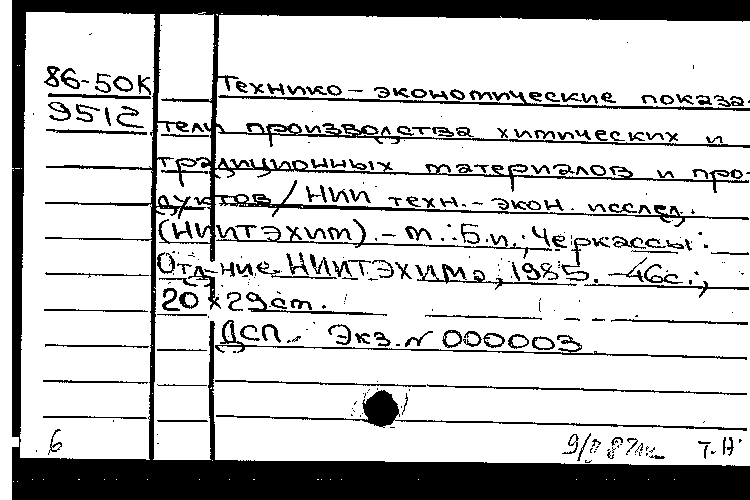 86-50К Технико-экономические показа-
9512 тели производства химических и
традиционных материалов и про-
дуктов/НИИ техн.-экон. исслед.
(НИИТЭХИМ).-М.:Б.и.; Черкассы:
Отд-ние НИИТЭХИМа, 1985.-46с.;
20×29см.
ДСП. Экз. № 000003
6 Т.Н.